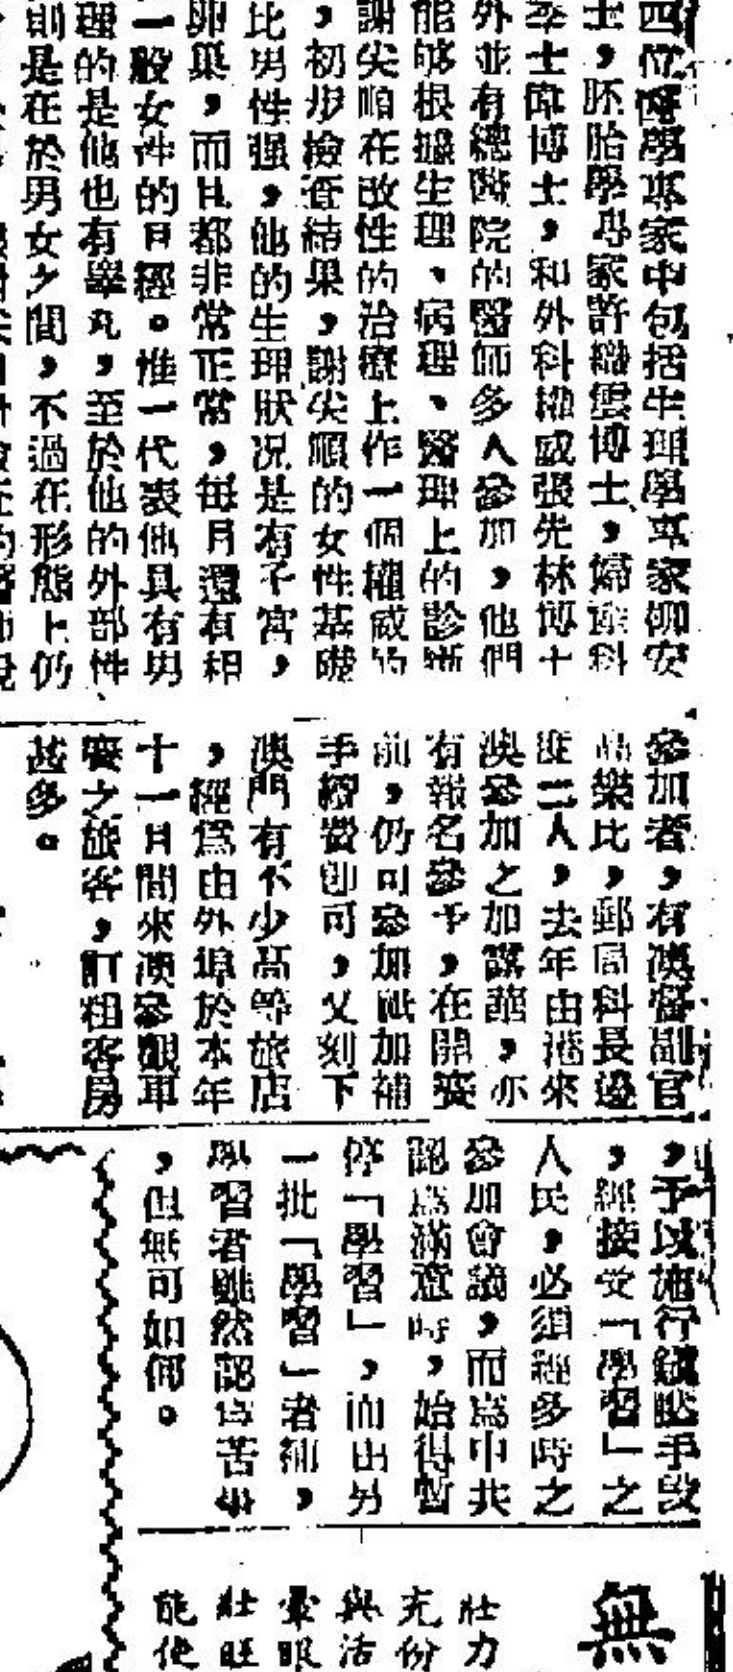 四位醫學專家中包括生理學專家柳安
士,胚胎學專家許織雲博士,婦產科
李士偉博士,和外科權威張先林博士
外並有總醫院的醫師多人參加,他們
能够根據生理、病理、醫理上的診斷
謝尖順在改性的治療上作一個權威的
,初步檢查結果,謝尖順的女性基礎
比男性强,他的生理狀况是有子宮,
卵巢,而且都非常正常,每月還有和
一般女性的月經。惟一代表他具有男
理的是他也有睾丸,至於他的外部性
則是在於男女之間,不過在形態上仍
參加者,有澳督副官
樂比,郵局科長
二人,去年由港來
澳參加之加諾華,亦
有報名參予,在開賽
前,仍可參加祇加補
手續費即可,又刻下
澳門有不少高等旅店
,經爲由外埠於本年
十一月間來澳參觀車
賽之旅客,訂租客房
甚多。
,予以施行鎮壓手段
,經接受「學習」之
人民,必須經多時之
參加會議,而爲中共
認爲滿意時,始得暫
停「學習」,而由另
一批「學習」者補,
學習者雖然認爲苦事
,但無可如何。
無
壯力
充份
與活
暈眼
壯旺
能使